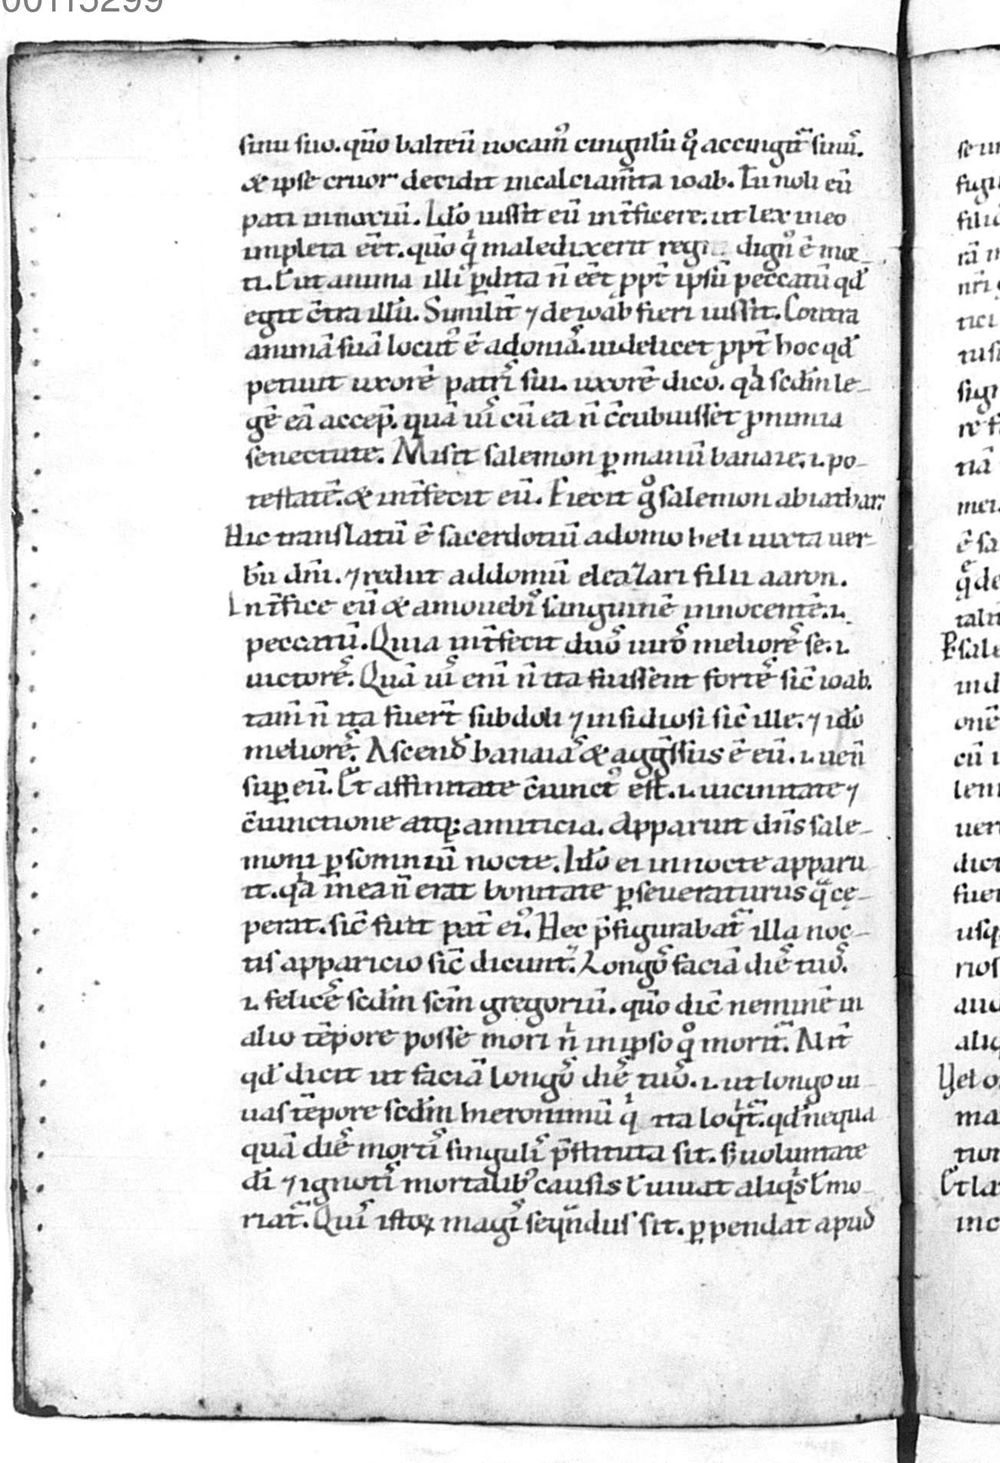 00115299
sinu suo. quō balteū uocam᷒ cinguľū q̊ accingit᷑ sinu᷒.
& ipse cruor decidit incalciam̄ta ioab. Tu noli eū
pati innoxiū. Ido᷒ iussit eū int̄ficere. ut lex meo
impleta eēt. quō qͥ maledixerit regi dign᷒ ē mor-
ti. ƚ ut anima illi᷒ ꝑdita n̄ eēt ꝓpt̄ ipsū peccatū qđ
egit c̄tra illū. Similit̄ ⁊ de ioab fieri iussit. Contra
animā suā locut᷒ ē adoniā. uidelicet ꝓpt̄ hoc qđ
petiuit uxorē patris sui. uxorē dico. qa sc̄dm le-
gē eā accep̄. quā uis cū ea n̄ c̄cubuisset p̱nimia
senectute. Misit salemon ꝑ manū banaie. .i. po-
testatē. & int̄fecit eū. Eiecit g̊ salemon abiathar.
Hic translatū ē sacerdotiū adomo heli iuxta uer-
bū dn̄i. ⁊ rediit addomū eleazari filii aaron.
Int̄fice eū & amouebis sanguinē innocentē. .i.
peccatū. Quia int̄fecit duos uiros meliores se. .i.
uictores. Quā uis eni̅ n̄ ita fuissent fortes sic̄ ioab.
tam̄ n̄ ita fuer̄t subdoli ⁊ insidiosi sic̄ ille. ⁊ ido᷒
meliores. Ascend᷒ banaias & aggressus ē eū. .i. uen̄
suꝑ eū. Et affinitate c̄iunct᷒ est. .i. uicinitate ⁊
c̄iunctione atq; amiticia. Apparuit dn̄s sale-
moni ꝑ somniū nocte. Ido᷒ ei in nocte apparu
it. qa in̄ ea n̄ erat bonitate ꝑseueraturus qͣ cę-
perat. sic̄ fuit pat̄ ei᷒. Hec p̄figurabat᷑ illa noc-
tis apparicio sic̄ dicunt᷑. Longos faciā dies tuos.
.i. felices sc̄dm sc̄m gregoriū. quō dic̄ neminē in
alio tēpore posse mori nͥ in ipso q̊ morit᷑. Alit̄
qđ dicit ut faciā longos dies tuos. .i. ut longo ui-
uas tēpore sc̄dm hieronimū qͥ ita loqͥt᷑. qđ nequa
quā dies mortis singulis p̄stituta sit. s; uoluntate
dī ⁊ ignotis mortalib᷒ causis ƚ uiuat aliqͥs ƚ mo-
riat᷑. Quis istoꝝ magis seqūdus sit. ꝑpendat apud